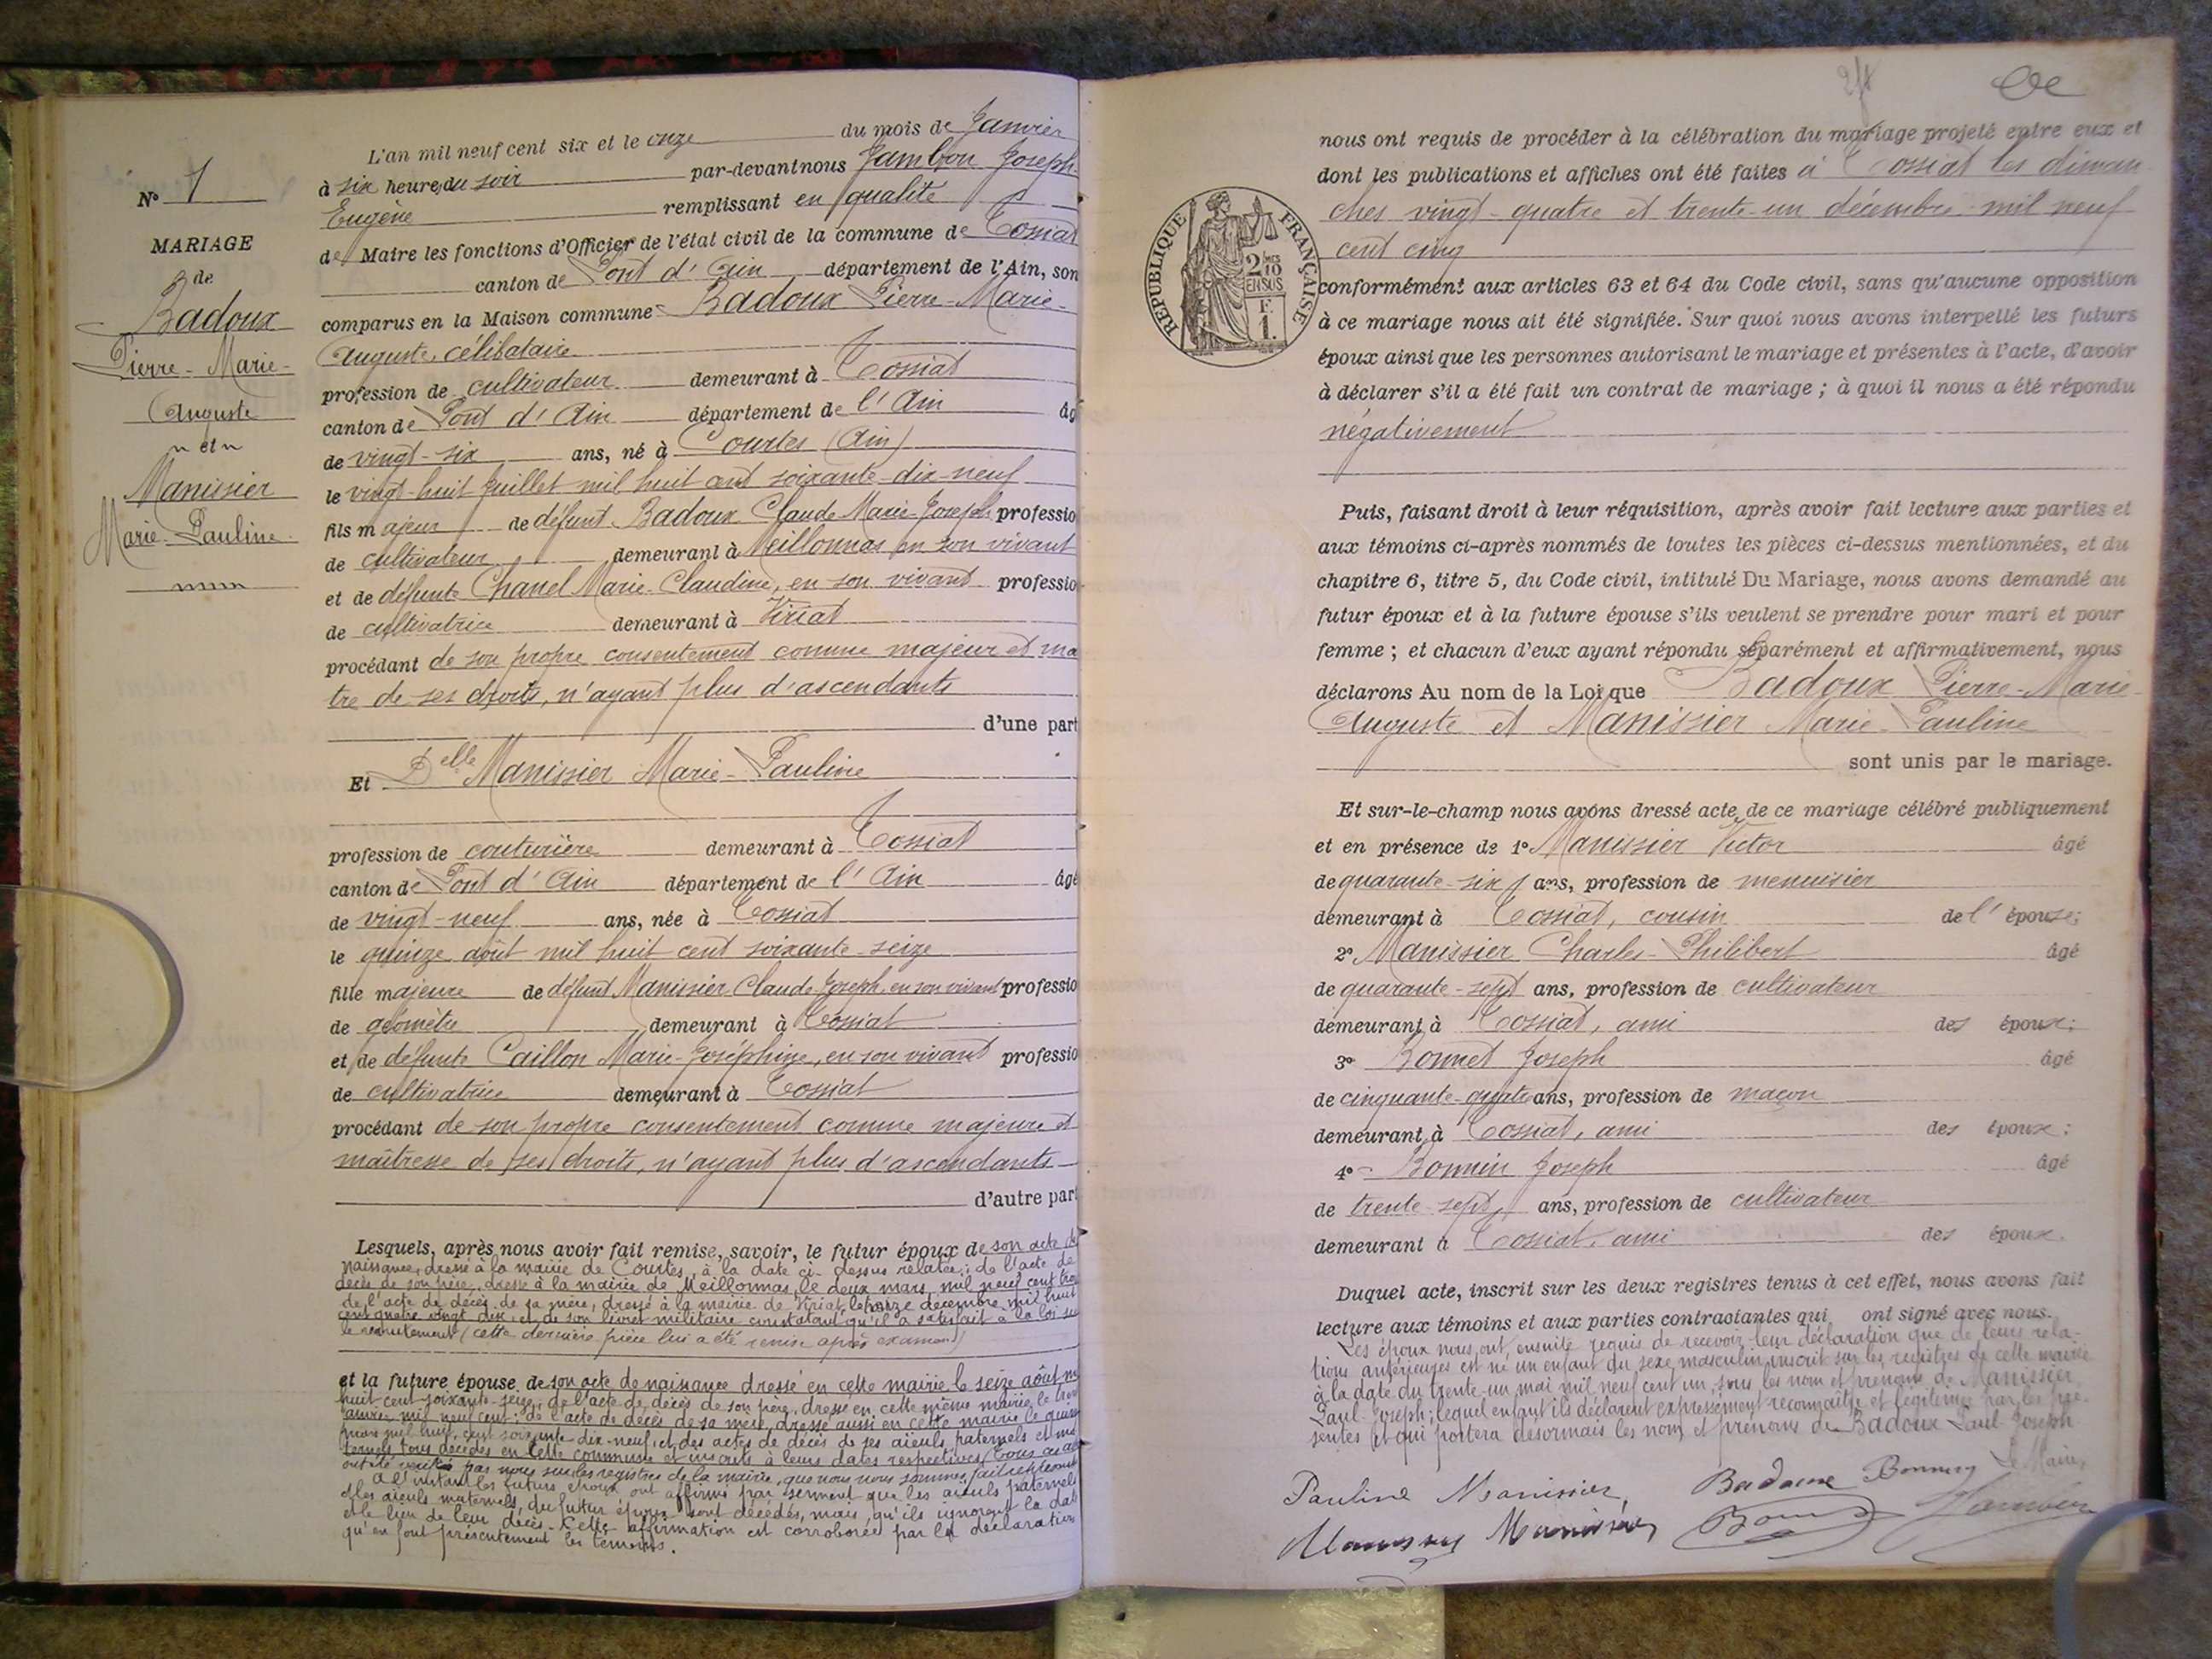 N° 1
MARIAGE
de
Badoux
Pierre-Marie-
Auguste
et
Manissier
Marie-Pauline
L'an mil neuf cent six et le onze du mois de Janvier
à six heures du soir par-devant nous Jambon Joseph-
Eugène remplissant en qualité
de Maire les fonctions d'Officier de l'état civil de la commune de Tossiat
canton de Pont d'Ain département de l'Ain, son
comparus en la Maison commune Badoux Pierre-Marie-
Auguste, célibataire
profession de cultivateur demeurant à Tossiat
canton de Pont d'Ain département de l'Ain âg
de vingt-six ans, né à Courtes (Ain)
le vingt-huit Juillet mil huit cent soixante-dix-neuf
fils majeur de défunt Badoux Claude Marie-Joseph professio
de cultivateur demeurant à Meillonnas en son vivant
et de défunte Chanel Marie-Claudine, en son vivant professio
de cultivatrice demeurant à Viriat
procédant de son propre consentement comme majeur et ma
tre de ses droits, n'ayant plus d'ascendants
d'une part
Et Delle Manissier Marie-Pauline
profession de couturière demeurant à Tossiat
canton de Pont d'Ain département de l'Ain âgé
de vingt-neuf ans, née à Tossiat
le quinze août mil huit cent soixante-seize
fille majeure de défunt Manissier Claude-Joseph, en son vivant professio
de géomètre demeurant à Tossiat
et de défunte Caillon Marie-Joséphine, en son vivant professio
de cultivatrice demeurant à Tossiat
procédant de son propre consentement comme majeure et
maîtresse de ses droits, n'ayant plus d'ascendants
d'autre part
Lesquels, après nous avoir fait remise, savoir, le futur époux de son acte de
naissance, dressé à la mairie de Courtes, à la date ci-dessus relatée; de l'acte de
décès de son père, dressé à la mairie de Meillonnas, le deux mars mil neuf cent
de l'acte de décès de sa mère, dressé à la mairie de Viriat, le décembre mil huit
cent quatre vingt dix, et de son livret militaire constatant qu'il a satisfait à la loi su
le recrutement (cette dernière pièce lui a été remise après examen)
et la future épouse de son acte de naissance dressé en cette mairie le seize août m
huit cent soixante-seize; de l'acte de décès de son père, dressé en cette même mairie le
janvier mil neuf cent; de l'acte de décès de sa mère, dressé aussi en cette mairie le
mars mil huit cent soixante dix-neuf, et des actes de décès de ses aïeuls paternels et ma
ternels tous décédés en cette commune et inscrits à leurs dates respectives
ont été vérifiés par nous sur les registres de la mairie, que nous nous sommes fait
A l'instant les futurs époux ont affirmé par serment que les aïeuls paternels
et les aïeuls maternels du futur époux sont décédés, mais qu'ils ignorent la date
et le lieu de leur décès. Cette affirmation est corroborée par la déclaration
qu'en font présentement les témoins.
nous ont requis de procéder à la célébration du mariage projeté entre eux et
dont les publications et affiches ont été faites à Tossiat les diman
ches vingt-quatre et trente-un décembre mil neuf
cent cinq
RÉPUBLIQUE FRANÇAISE
2/10
EN SUS
F.
1.
conformément aux articles 63 et 64 du Code civil, sans qu'aucune opposition
à ce mariage nous ait été signifiée. Sur quoi nous avons interpellé les futurs
époux ainsi que les personnes autorisant le mariage et présentes à l'acte, d'avoir
à déclarer s'il a été fait un contrat de mariage; à quoi il nous a été répondu
négativement
Puis, faisant droit à leur réquisition, après avoir fait lecture aux parties et
aux témoins ci-après nommés de toutes les pièces ci-dessus mentionnées, et du
chapitre 6, titre 5, du Code civil, intitulé Du Mariage, nous avons demandé au
futur époux et à la future épouse s'ils veulent se prendre pour mari et pour
femme; et chacun d'eux ayant répondu séparément et affirmativement, nous
déclarons Au nom de la Loi que Badoux Pierre-Marie-
Auguste et Manissier Marie-Pauline
sont unis par le mariage.
Et sur-le-champ nous avons dressé acte de ce mariage célébré publiquement
et en présence de 1° Manissier Victor âgé
de quarante-six ans, profession de menuisier
demeurant à Tossiat, cousin de l'épouse;
2° Manissier Charles-Philibert âgé
de quarante-sept ans, profession de cultivateur
demeurant à Tossiat, ami des époux;
3° Bonnet Joseph âgé
de cinquante-quatre ans, profession de maçon
demeurant à Tossiat, ami des époux;
4° Bonnin Joseph âgé
de trente-sept ans, profession de cultivateur
demeurant à Tossiat, ami des époux.
Duquel acte, inscrit sur les deux registres tenus à cet effet, nous avons fait
lecture aux témoins et aux parties contractantes qui ont signé avec nous.
Les époux nous ont ensuite requis de recevoir leur déclaration que de leurs rela-
tions antérieures est né un enfant du sexe masculin, inscrit sur les registres de cette mairie
à la date du trente-un mai mil neuf cent un, sous les nom et prénoms de Manissier
Paul-Joseph; lequel enfant ils déclarent expressément reconnaître et légitimer par les pré-
sentes et qui portera désormais les nom et prénoms de Badoux Paul-Joseph
Pauline Manissier Badoux Bonnin Le Maire,
Manissier Manissier